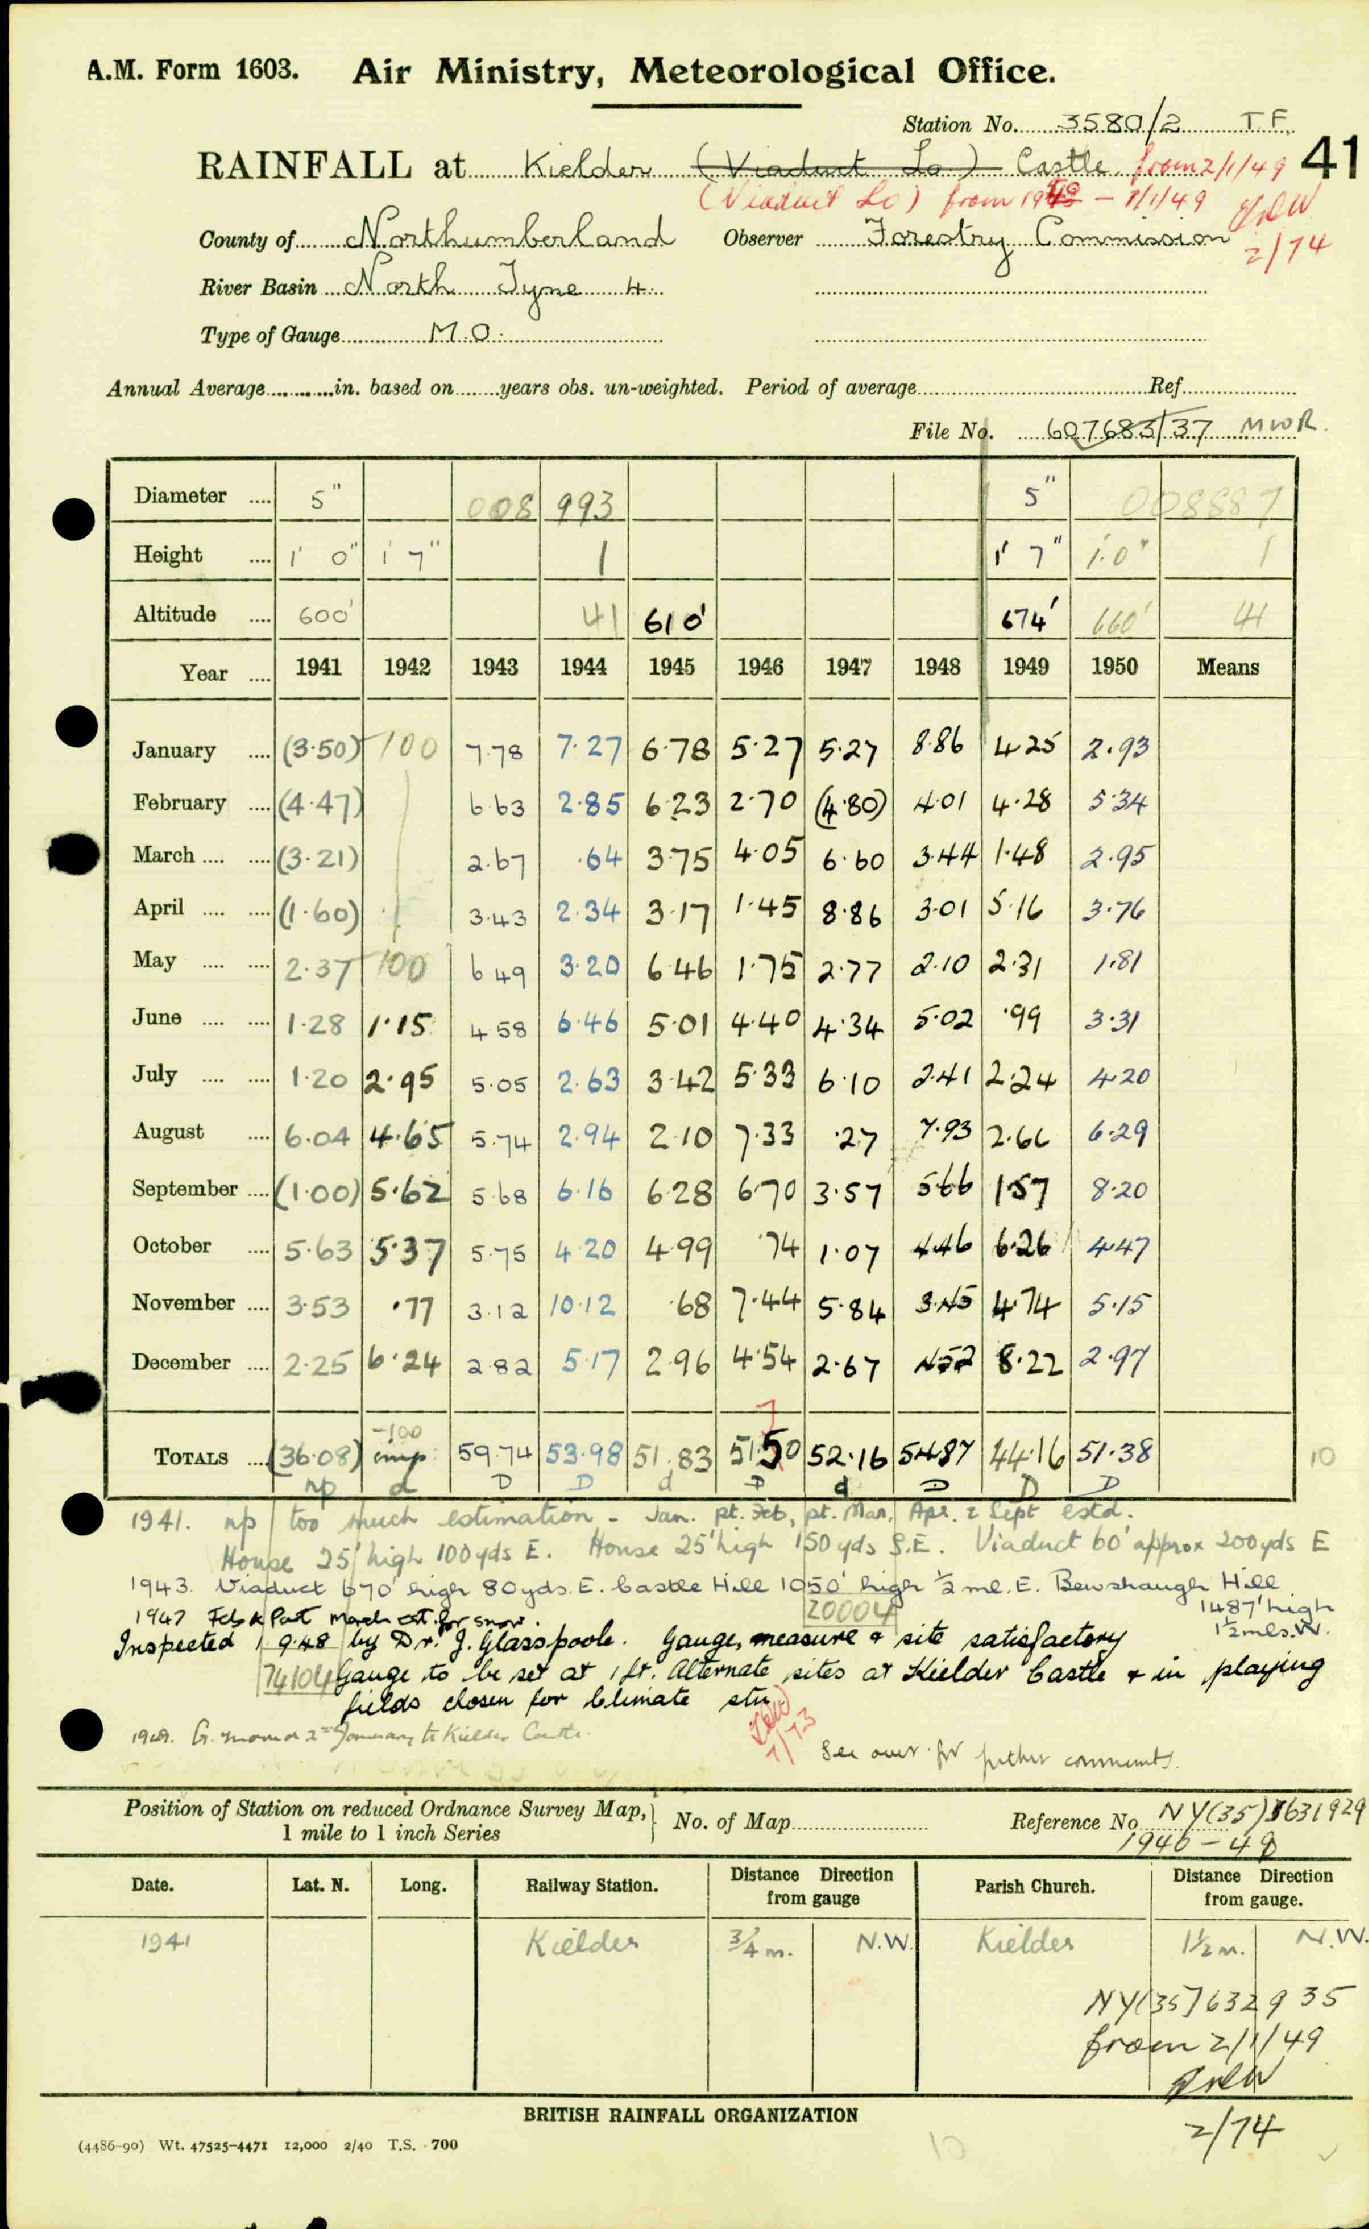 A.M. Form 1603. Air Ministry, Meteorological Office.
Station No. 3580/2 T.F.
41
RAINFALL at Kielder (Viaduct Lo) Castle from 2/1/49
(Viaduct Lo) from 19 – 1/1/49
County of Northumberland Observer Forestry Commission
2/74
River Basin North Tyne 4
Type of Gauge M.O.
Annual Average in. based on years obs. un-weighted. Period of average Ref.
File No. 607683/37 MWR.
Diameter 5" 008 993 5" 008887
Height 1' 0" 1' 7" 1 1' 7" 1'.0" 1
Altitude 600' 41 610' 674' 660' 41
Year 1941 1942 1943 1944 1945 1946 1947 1948 1949 1950 Means
January (3.50) -100 7.78 7.27 6.78 5.27 5.27 8.86 4.25 2.93
February (4.47) 6.63 2.85 6.23 2.70 (4.80) 4.01 4.28 5.34
March (3.21) 2.67 .64 3.75 4.05 6.60 3.44 1.48 2.95
April (1.60) 3.43 2.34 3.17 1.45 8.86 3.01 5.16 3.76
May 2.37 -100 6.49 3.20 6.46 1.75 2.77 2.10 2.31 1.81
June 1.28 1.15 4.58 6.46 5.01 4.40 4.34 5.02 .99 3.31
July 1.20 2.95 5.05 2.63 3.42 5.33 6.10 2.41 2.24 4.20
August 6.04 4.65 5.74 2.94 2.10 7.33 .27 7.93 2.66 6.29
September (1.00) 5.62 5.68 6.16 6.28 6.70 3.57 5.66 1.57 8.20
October 5.63 5.37 5.75 4.20 4.99 .74 1.07 4.46 6.26 4.47
November 3.53 .77 3.12 10.12 .68 7.44 5.84 3.45 4.74 5.15
December 2.25 6.24 2.82 5.17 2.96 4.54 2.67 4.52 8.22 2.97
7
-100
TOTALS (36.08) imp 59.74 53.98 51.83 51.50 52.16 54.87 44.16 51.38
10
np d D D d D d D D D
1941. np too much estimation – Jan. pt. Feb, pt. Mar, Apr. & Sept estd.
House 25' high 100yds E. House 25' high 150yds S.E. Viaduct 60' approx 200yds E
1943. Viaduct 670' high 80yds. E. Castle Hill 1050' high ½ ml. E. Bewshaugh Hill
1487' high
1½ mls. W.
1947 Feb & Part March est. for snow.
20004
Inspected 1 9.48 by Dr. J. Glasspoole. Gauge, measure & site satisfactory
74104 Gauge to be set at 1 ft. Alternate sites at Kielder Castle & in playing
fields chosen for Climate stn
7/73
1949. G. moved 2nd January to Kielder Castle.
See over for further comments.
Position of Station on reduced Ordnance Survey Map,
1 mile to 1 inch Series
No. of Map
Reference No. NY(35)631929
1940–49
Date. Lat. N. Long. Railway Station. Distance Direction from gauge Parish Church. Distance Direction from gauge.
1941 Kielder ¾ m. N.W. Kielder 1½ m. N.W.
NY(35)632935
from 2/1/49
2/74
BRITISH RAINFALL ORGANIZATION
(4486-90) Wt. 47525-4471 12,000 2/40 T.S. 700
10